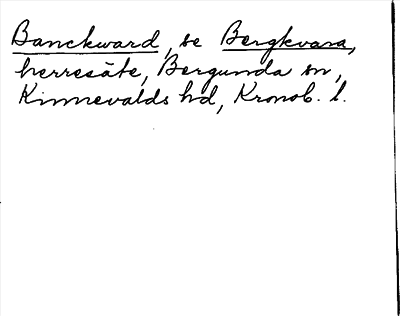 Banckward, se Bergkvara,
herresäte, Bergunda sn,
Kinnevalds hd, Kronob. l.